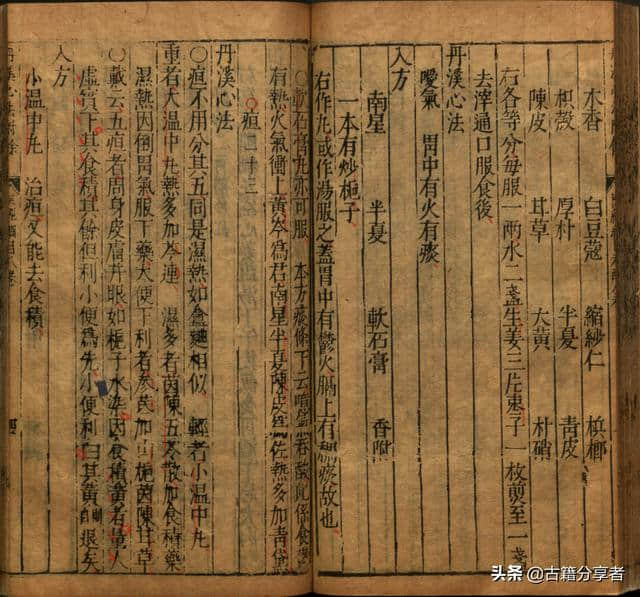 木香 白豆蔻 縮紗仁 梹榔
枳殼 厚朴 半夏 青皮
陳皮 甘草 大黃 朴硝
右各等分每服一兩水二盞生姜三片棗子一枚煎至一盞
去滓通口服食後
丹溪心法
噯氣 胃中有火有痰
入方
南星 半夏 軟石膏 香附
一本有炒梔子
右作丸或作湯服之蓋胃中有鬱火膈上有稠痰故也
○軟石膏丸亦可服 本方痰條下云噫氣吞酸此係食鬱
有熱火氣衝上黃芩為君南星半夏陳皮為佐熱多加青黛
疸三十三
丹溪心法
○疸不用分其五同是濕熱如盦麯相似 輕者小溫中丸
重者大溫中丸熱多加芩連 濕多者茵陳五苓散加食積藥
濕熱因倒胃氣服下藥大便下利者參芪加山梔茵陳甘草
○戴云五疸者周身皮膚并眼如梔子水染因食積黃者量人
虛實下其食積其餘但利小便為先小便利白其黃自退矣
入方
小溫中丸 治疸又能去食積
頭条 @古籍分享者